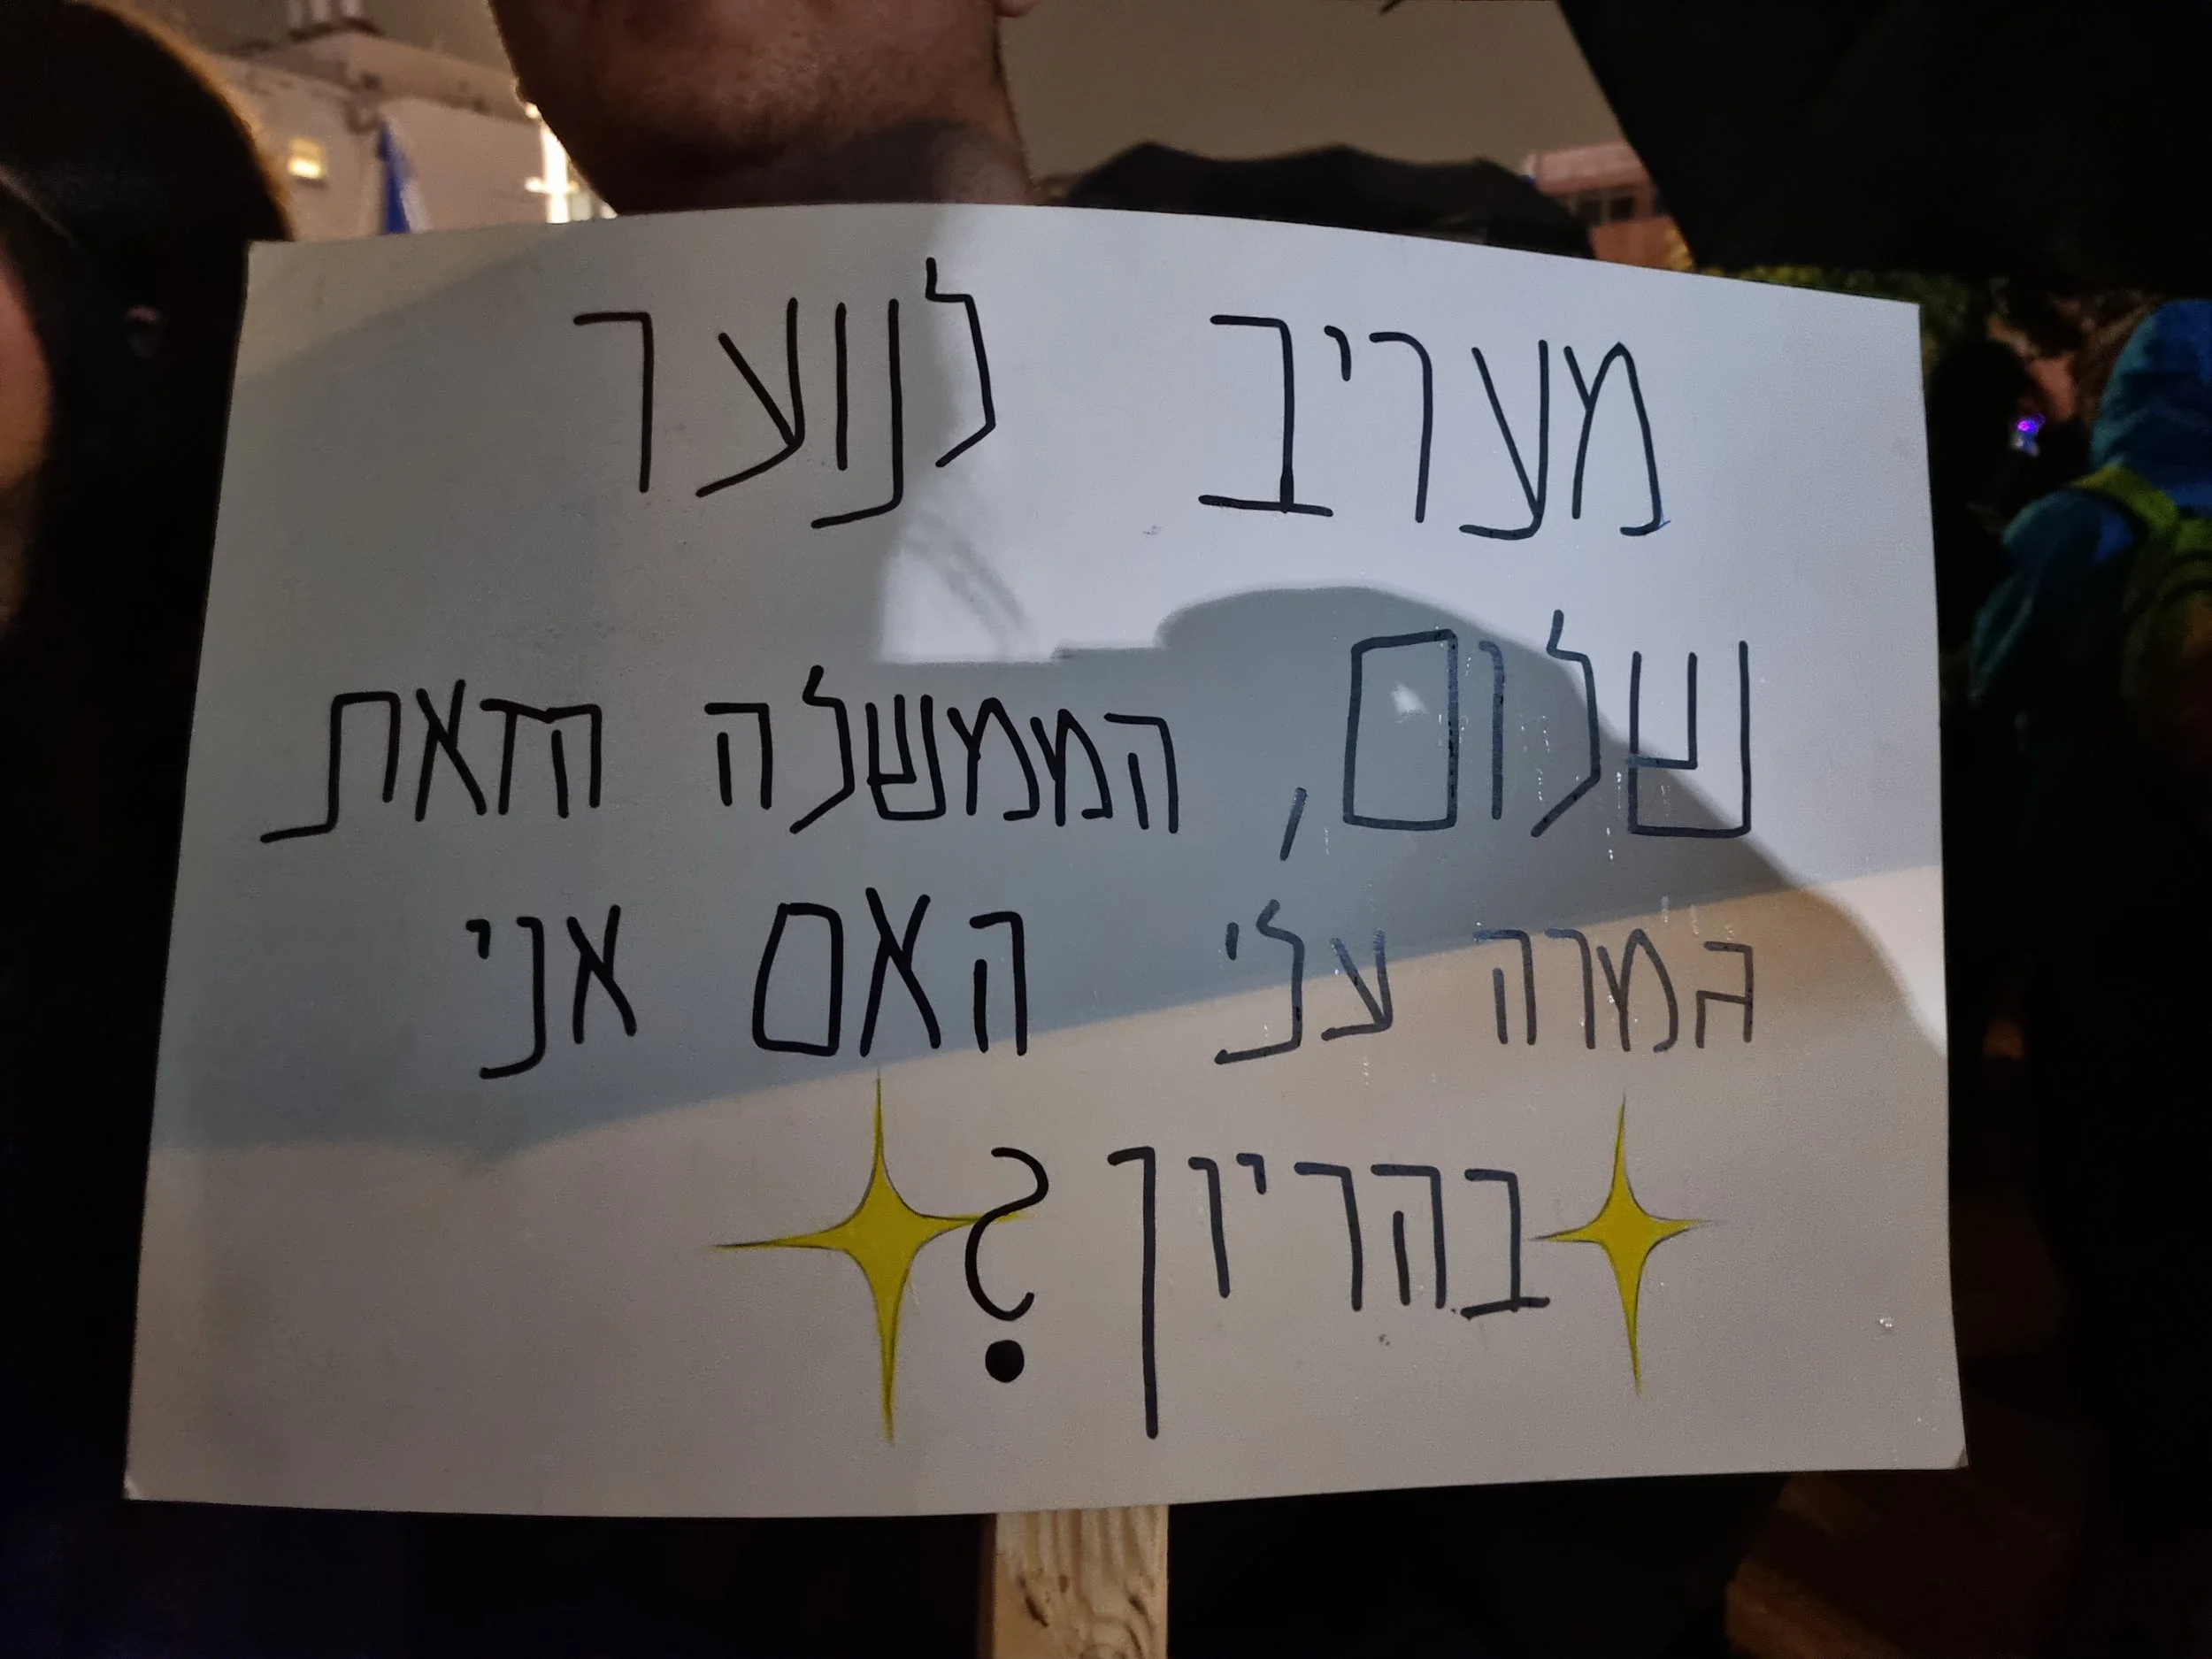 מעריב לנוער
שלום, הממשלה הזאת
גמרה עלי האם אני
בהריון?